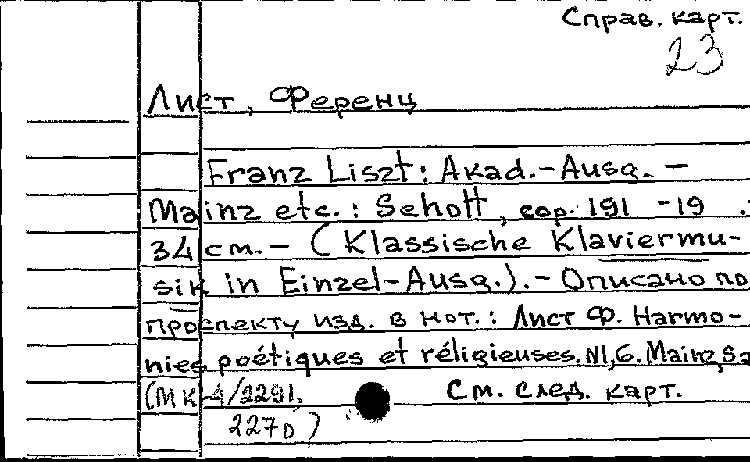 Справ. карт.
23
Лист, Ференц
Franz Liszt: Akad.-Ausg. –
Mainz etc.: Schott, cop. 191 -19
34 см. – (Klassische Klaviermu-
sik in Einzel-Ausg.). – Описано по
проспекту изд. в нот.: Лист Ф. Harmo-
nies poétiques et réligieuses. N1,6. Mainz,
(МК-4/2291,
См. след. карт.
227D)